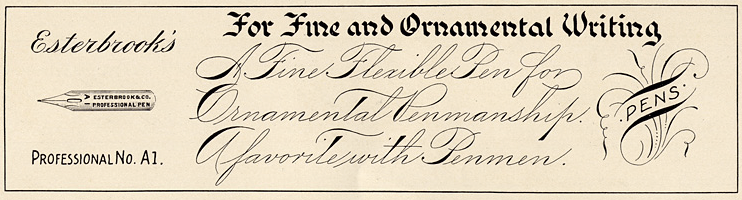 Esterbrook's
A1 ESTERBROOK & CO.
PROFESSIONAL PEN
PROFESSIONAL No. A1.
For Fine and Ornamental Writing
A Fine Flexible Pen for
Ornamental Penmanship.
A favorite with Penmen.
PENS.